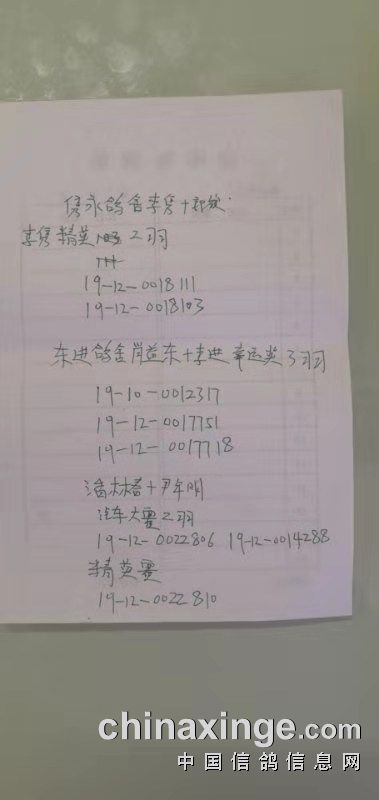 隽永鸽舍李隽十
李隽精英 2羽
19-12-0018111
19-12-0018103
东进鸽舍肖益东+李进 幸运奖3羽
19-10-0012317
19-12-0017751
19-12-0017718
潘林 + 尹年明
汽车大赛2羽
19-12-0022806 19-12-0014288
精英赛
19-12-0022810
chinaxinge.com
中国信鸽信息网